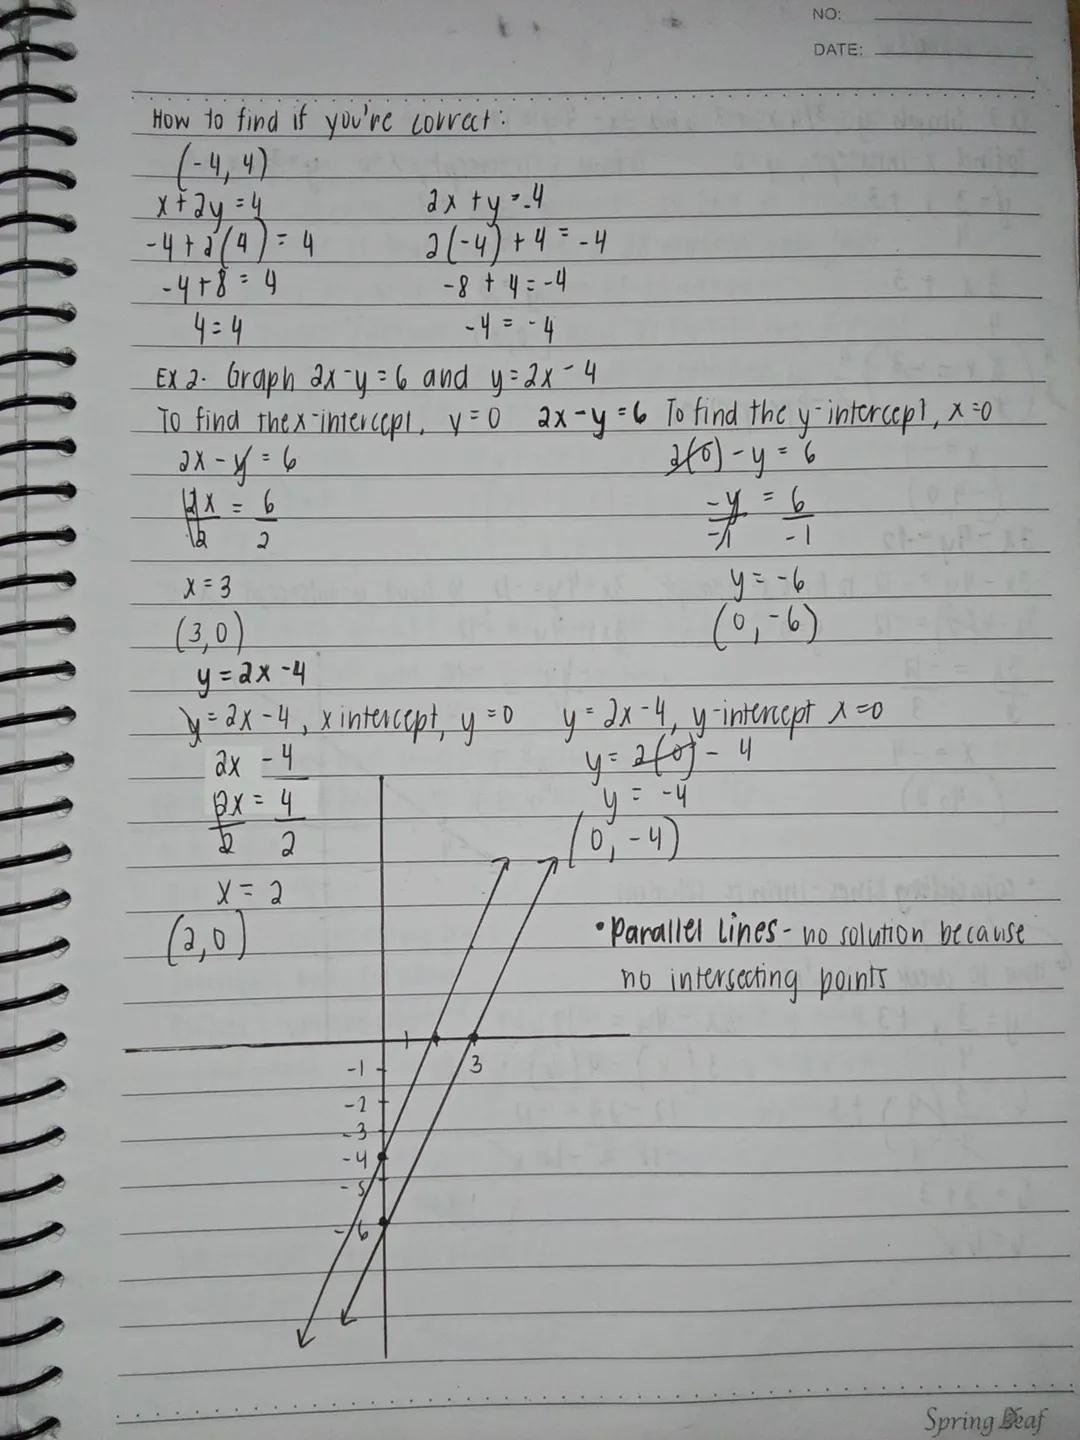 NO:
DATE:
How to find if you're correct:
(-4, 4)
x + 2y = 4
-4 + 2(4) = 4
-4 + 8 = 4
4 = 4
2x + y = -4
2(-4) + 4 = -4
-8 + 4 = -4
-4 = -4
EX 2. Graph 2x - y = 6 and y = 2x - 4
To find the x-intercept, y = 0 2x - y = 6 To find the y-intercept, x = 0
2x - y = 6
2x = 6
2 2
x = 3
(3, 0)
2(0) - y = 6
-y = 6
-1 -1
y = -6
(0, -6)
y = 2x - 4
y = 2x - 4, x intercept, y = 0
2x - 4
2x = 4
2 2
x = 2
(2, 0)
y = 2x - 4, y-intercept x = 0
y = 2(0) - 4
y = -4
(0, -4)
• Parallel Lines - no solution because
no intersecting points
1
3
-1
-2
-3
-4
-5
-6
Spring Leaf